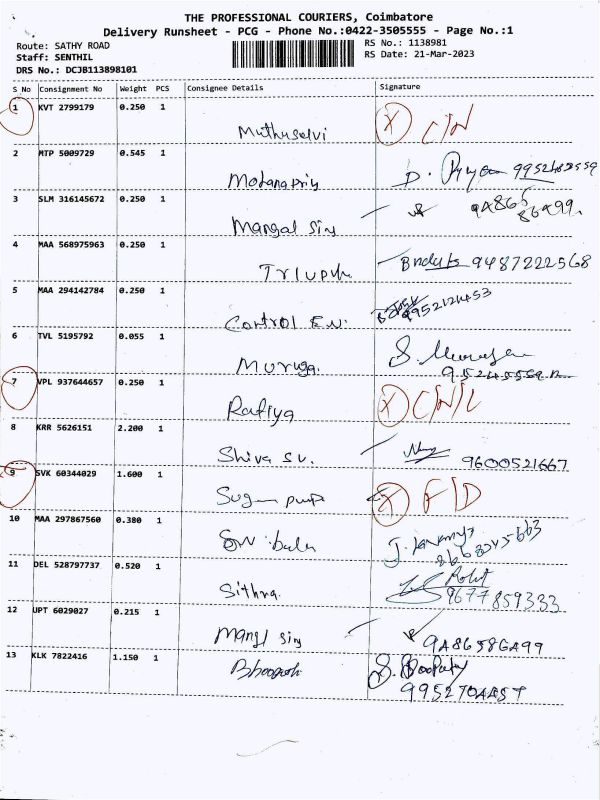 THE PROFESSIONAL COURIERS, Coimbatore
Delivery Runsheet - PCG - Phone No.:0422-3505555 - Page No.:1
Route: SATHY ROAD
Staff: SENTHIL
DRS No.: DCJB113898101
RS No.: 1138981
RS Date: 21-Mar-2023
S No Consignment No Weight PCS Consignee Details Signature
1 KVT 2799179 0.250 1
Muthuselvi X C/N
2 MTP 5009729 0.545 1
Mohanapriy D.
3 SLM 316145672 0.250 1
Mangal Sin
4 MAA 568975963 0.250 1
9487222568
5 MAA 294142784 0.250 1
Control E.N. 9952121453
6 TVL 5195792 0.055 1
Muruga. S. Murugan
7 VPL 937644657 0.250 1
Rafiya X C/N/L
8 KRR 5626151 2.200 1
Shiva Su. 9600521667
9 SVK 60344029 1.600 1
Sugun X F/D
10 MAA 297867560 0.380 1
Sri bala J.
11 DEL 528797737 0.520 1
Sithra. Rohit
9677859333
12 UPT 6029027 0.215 1
Mangl Sin 9486586499
13 KLK 7822416 1.150 1
S. Boopathy